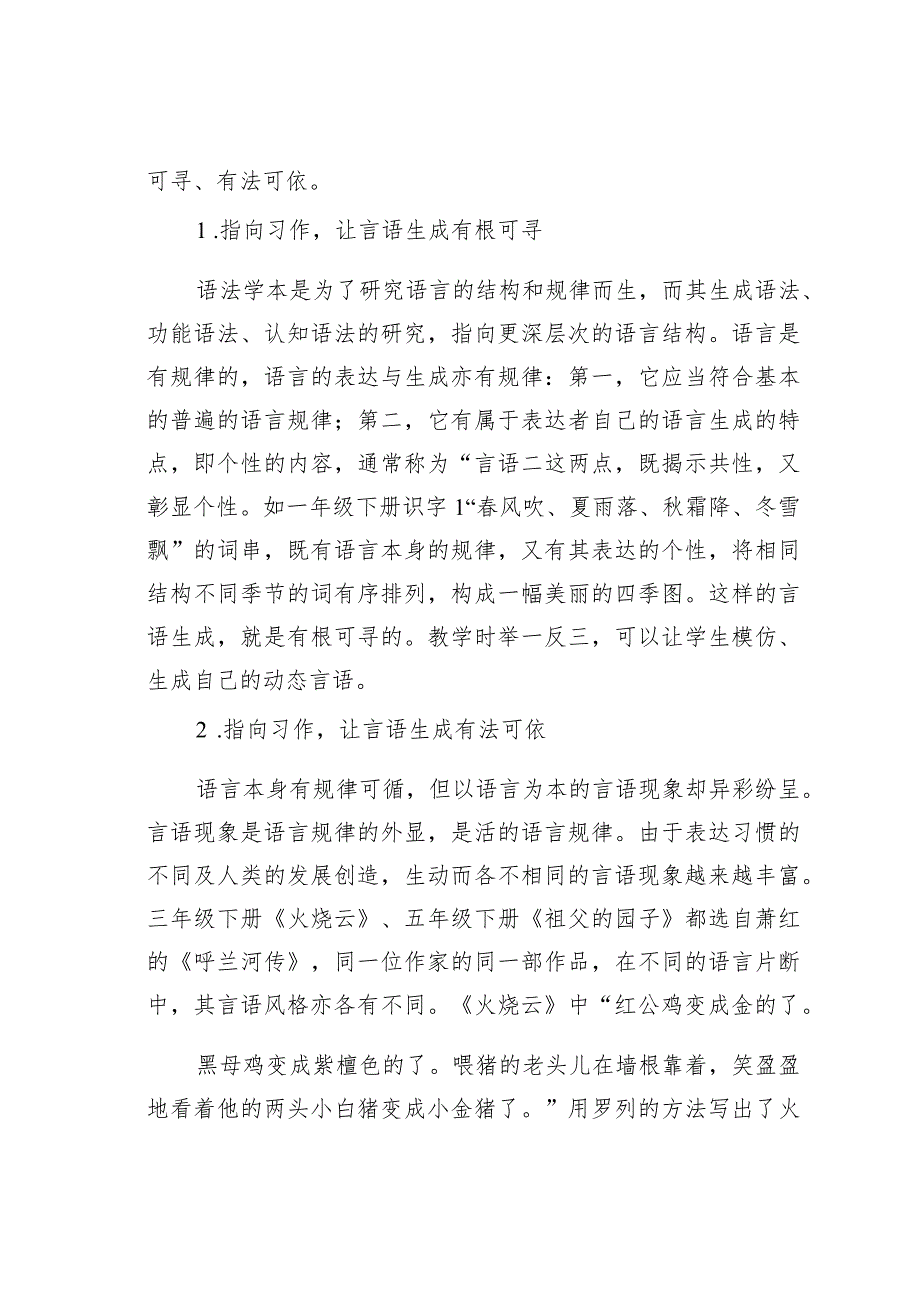 可寻、有法可依。
1 .指向习作，让言语生成有根可寻
语法学本是为了研究语言的结构和规律而生，而其生成语法、
功能语法、认知语法的研究，指向更深层次的语言结构。语言是
有规律的，语言的表达与生成亦有规律：第一，它应当符合基本
的普遍的语言规律；第二，它有属于表达者自己的语言生成的特
点，即个性的内容，通常称为“言语二这两点，既揭示共性，又
彰显个性。如一年级下册识字 1“春风吹、夏雨落、秋霜降、冬雪
飘”的词串，既有语言本身的规律，又有其表达的个性，将相同
结构不同季节的词有序排列，构成一幅美丽的四季图。这样的言
语生成，就是有根可寻的。教学时举一反三，可以让学生模仿、
生成自己的动态言语。
2 .指向习作，让言语生成有法可依
语言本身有规律可循，但以语言为本的言语现象却异彩纷呈。
言语现象是语言规律的外显，是活的语言规律。由于表达习惯的
不同及人类的发展创造，生动而各不相同的言语现象越来越丰富。
三年级下册《火烧云》、五年级下册《祖父的园子》都选自萧红
的《呼兰河传》，同一位作家的同一部作品，在不同的语言片断
中，其言语风格亦各有不同。《火烧云》中“红公鸡变成金的了。
黑母鸡变成紫檀色的了。喂猪的老头儿在墙根靠着，笑盈盈
地看着他的两头小白猪变成小金猪了。”用罗列的方法写出了火